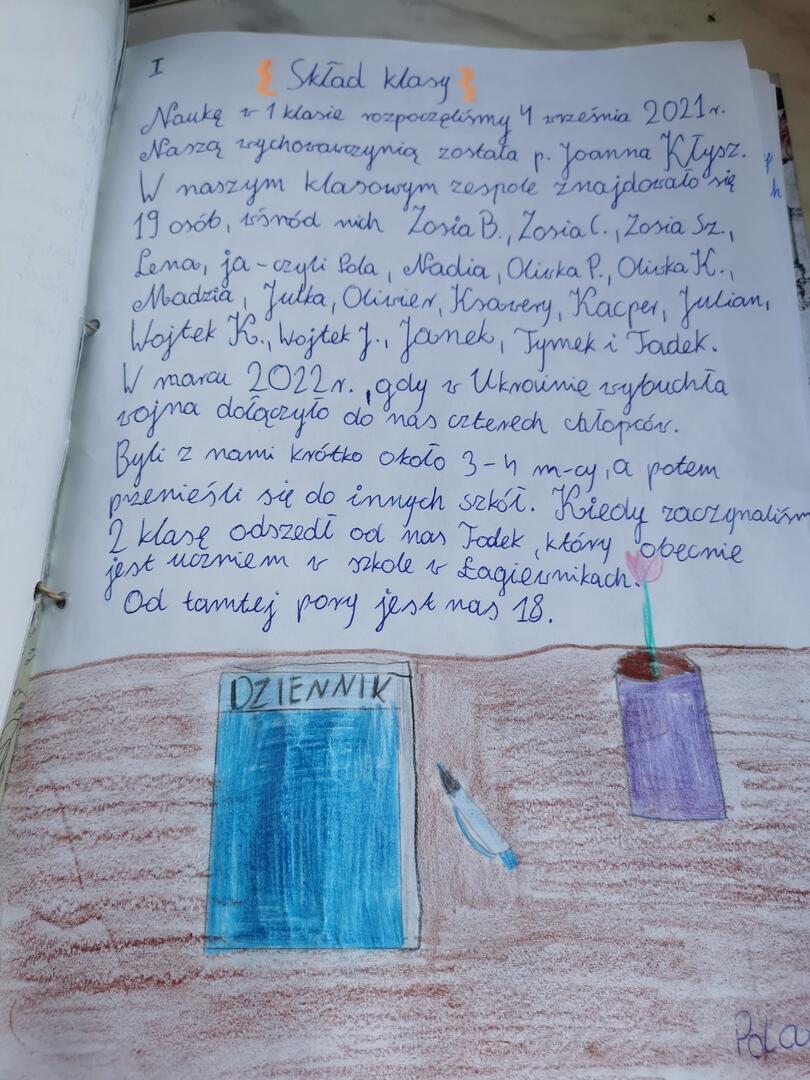 I
Skład klasy
Naukę w 1 klasie rozpoczęliśmy 4 września 2021r.
Naszą wychowawczynią została p. Joanna Kłysz.
W naszym klasowym zespole znajdowało się
19 osób, wśród nich Zosia B., Zosia C., Zosia Sz.,
Lena, ja-czyli Pola, Nadia, Oliwka P., Oliwka K.,
Madzia, Julka, Oliwier, Ksawery, Kacper, Julian,
Wojtek K., Wojtek J., Janek, Tymek i Tadek.
W marcu 2022r., gdy w Ukrainie wybuchła
wojna dołączyło do nas czterech chłopców.
Byli z nami krótko około 3-4 m-cy, a potem
przenieśli się do innych szkół. Kiedy zaczynaliśm
2 klasę odszedł od nas Tadek, który obecnie
jest uczniem w szkole w Łagiewnikach.
Od tamtej pory jest nas 18.
DZIENNIK
Pola